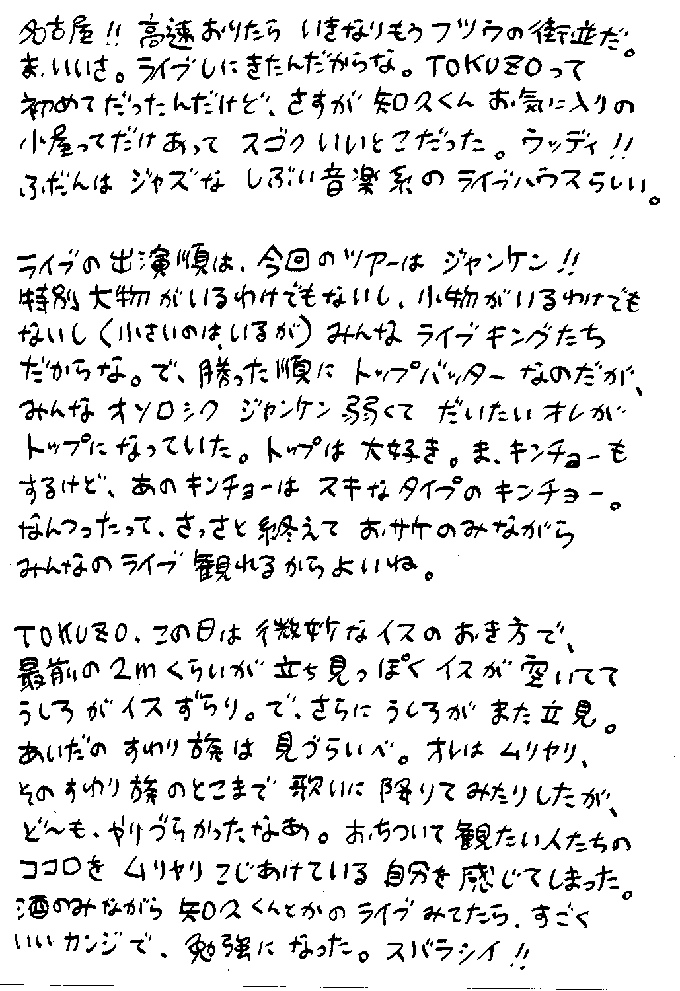 名古屋!! 高速おりたら いきなりもうフツウの街並だ。
ま、いいさ。ライブしにきたんだからな。TOKUZOって
初めてだったんだけど、さすが 知久くん お気に入りの
小屋ってだけあって スゴクいいとこだった。ウッディ!!
ふだんは ジャズな しぶい音楽系の ライブハウスらしい。

ライブの出演順は、今回のツアーは ジャンケン!!
特別 大物がいるわけでもないし、小物がいるわけでも
ないし(小さいのは、いるが)みんな ライブキングたち
だからな。で、勝った順に トップバッターなのだが、
みんな オソロシク ジャンケン弱くて だいたいオレが
トップになっていた。トップは 大好き。ま、キンチョーも
するけど、あのキンチョーは スキなタイプのキンチョー。
なんつったって、さっさと終えて おサケのみながら
みんなのライブ観れるからよいね。

TOKUZO、この日は 微妙なイスのおき方で、
最前の2mくらいが 立ち見っぽくイスが空いてて
うしろがイスずらり。で、さらにうしろがまた立見。
あいだの すわり族は 見づらいべ。オレは ムリヤリ、
そのすわり族のとこまで 歌いに降りてみたりしたが、
ど〜も、やりづらかったなあ。おちついて観たい人たちの
ココロを ムリヤリこじあけている 自分を感じてしまった。
酒のみながら 知久くんとかのライブみてたら、すごく
いいカンジで、勉強になった。スバラシイ!!